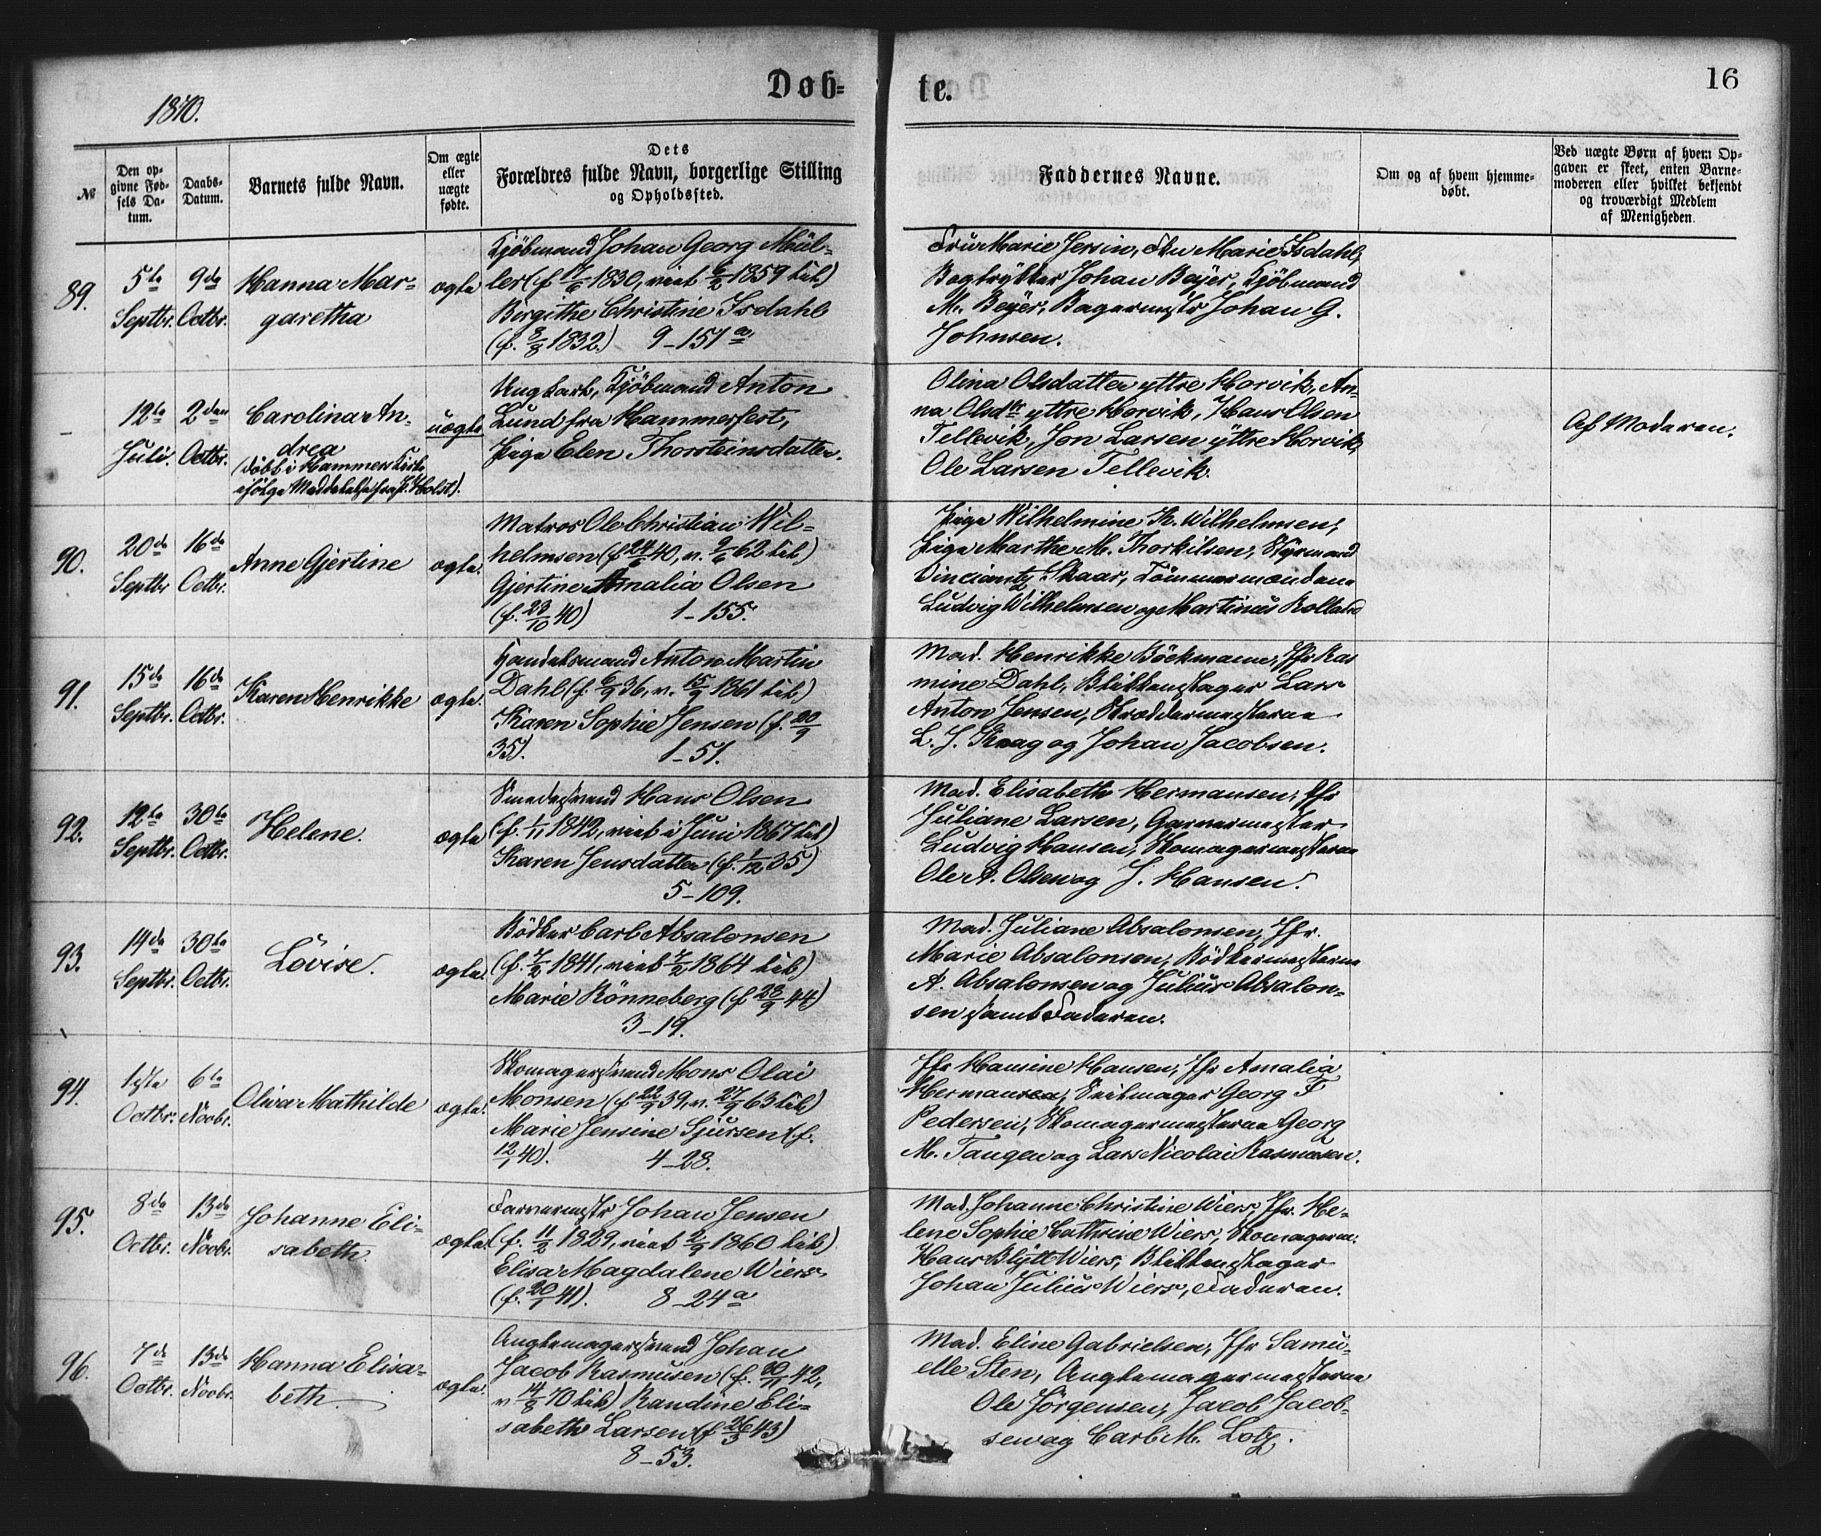 1870.
Døb-
te.
16
№
Den op-
givne Fød-
sels Da-
tum.
Daabs-
Datum.
Barnets fulde Navn.
Om ægte
eller
uægte
fødte.
Dets
Forældres fulde Navn, borgerlige Stilling
og Opholdssted.
Faddernes Navne.
Om og af hvem hjemme-
døbt.
Ved uægte Børn af hvem Op-
gaven er skeet, enten Barne-
moderen eller hvilket bekjendt
og troværdigt Medlem
af Menigheden.
89.
5te
Septbr.
9de
Octbr.
Hanna Mar-
garetha
ægte
Kjøbmand Johan Georg Mül-
ler (f. 1830, viet 1859 til)
Birgithe Christine Isdahl
(f. 3/8 1832.) 9-151a
Fru Marie Jersin, Fru Marie Isdahl,
Bogtrykker Johan Beyer, Kjøbmand
M. Beyer, Bagermestr Johan G.
Johnsen.
-
12te
Juli.
2den
Octbr.
Carolina An-
drea
(døbt i Hammers Kirke
ifølge Meddelelse fra P. Holst).
uægte
Ungkarl, Kjøbmand Anton
Lund fra Hammerfest,
Pige Elen Thorsteinsdatter.
Olina Olsdatter yttre Horvik, An-
na Olsdtr yttre Horvik, Hans Olsen
Tellevik, Jon Larsen yttre Horvik,
Ole Larsen Tellevik.
Af Moderen.
90.
20de
Septbr
16de
Octbr.
Anne Gjertine
ægte.
Matros Ole Christian Wil-
helmsen (f 40, v. 62 til)
Gjertine Amalia Olsen
(f. 23/10 40) 1-155.
Pige Wilhelmine K. Wilhelmsen,
Pige Marthe M. Thorkilsen, Styrmand
Skaar, Tömmermændene
Ludvig Wilhelmsen og Martinus Rolland
91.
15de
Septbr.
16de
Octbr.
Karen Henrikke
ægte.
Handelsmand Anton Martin
Dahl (f. 6/9 36, v. 15/9 1861 til)
Karen Sophie Jensen (f. 20/9
35). 1-51.
Mad. Henrikke Böckmann, Jfr Ras
mine Dahl, Blikkenslager Lars
Anton Jensen, Skræddermesterne
L. J. Krag og Johan Jacobsen.
92.
12te
Septbr.
30te
Octbr.
Helene.
ægte
Smedesvend Hans Olsen
(f. 1/11 1842, viet i Juni 1867 til)
Karen Jensdatter (f. 1/12 35)
5-109.
Mad. Elisabeth Hermansen, Jfr
Juliane Larsen, Garvermester
Ludvig Hansen, Skomagermesterne
Ole A. Olsen og J. Hansen.
93.
14de
Septbr.
30te
Octbr.
Lovise.
ægte.
Bödker Carl Absalonsen
(f. 7/2 1841, viet 7/2 1864 til)
Marie Rönneberg (f 28/9 44)
3-19.
Mad. Juliane Absalonsen, Jfr.
Marie Absalonsen, Bödkermesterne
A. Absalonsen og Julius Absalon-
sen samt Faderen.
94.
1ste
Octbr.
6te
Novbr.
Oliva Mathilde
ægte.
Skomagersvend Mons Olai
Monsen (f 22/9 39, v. 27/9 63 til)
Marie Jensine Sjursen (f.
12/1 40). 4-28.
Jfr Hansine Hansen, Jfr Amalia
Hermansen, Georg F
Pedersen, Skomagermesterne Georg
M. Tangen og Lars Nicolai Rasmusen.
95.
8de
Octbr.
13de
Novbr.
Johanne Eli-
sabeth
ægte.
Farvermestr Johan Jensen
(f. 11/2 1829, viet 2/9 1860 til)
Elisa Magdalene Wiers
(f. 20/1 41). 8-24a
Mad. Johanne Christine Wiers, Jfr. He-
lene Sophie Cathrine Wiers, Skomagerm.
Hans Blytt Wiers, Blikkenslager
Johan Julius Wiers, Faderen.
96.
7de
Octbr.
13de
Novbr.
Hanna Elisa-
beth
ægte.
Angtemagersvend Johan
Jacob Rasmusen (f. 30/11 42,
v 14/8 70 til) Randine Eli-
sabeth Larsen (f 26/3 43)
8-53.
Mad. Eline Gabrielsen, Jfr Samu-
elle Sten, Angtemagermesterne
Ole Jörgensen, Jacob Jacob-
sen og Carl M. Lotz.